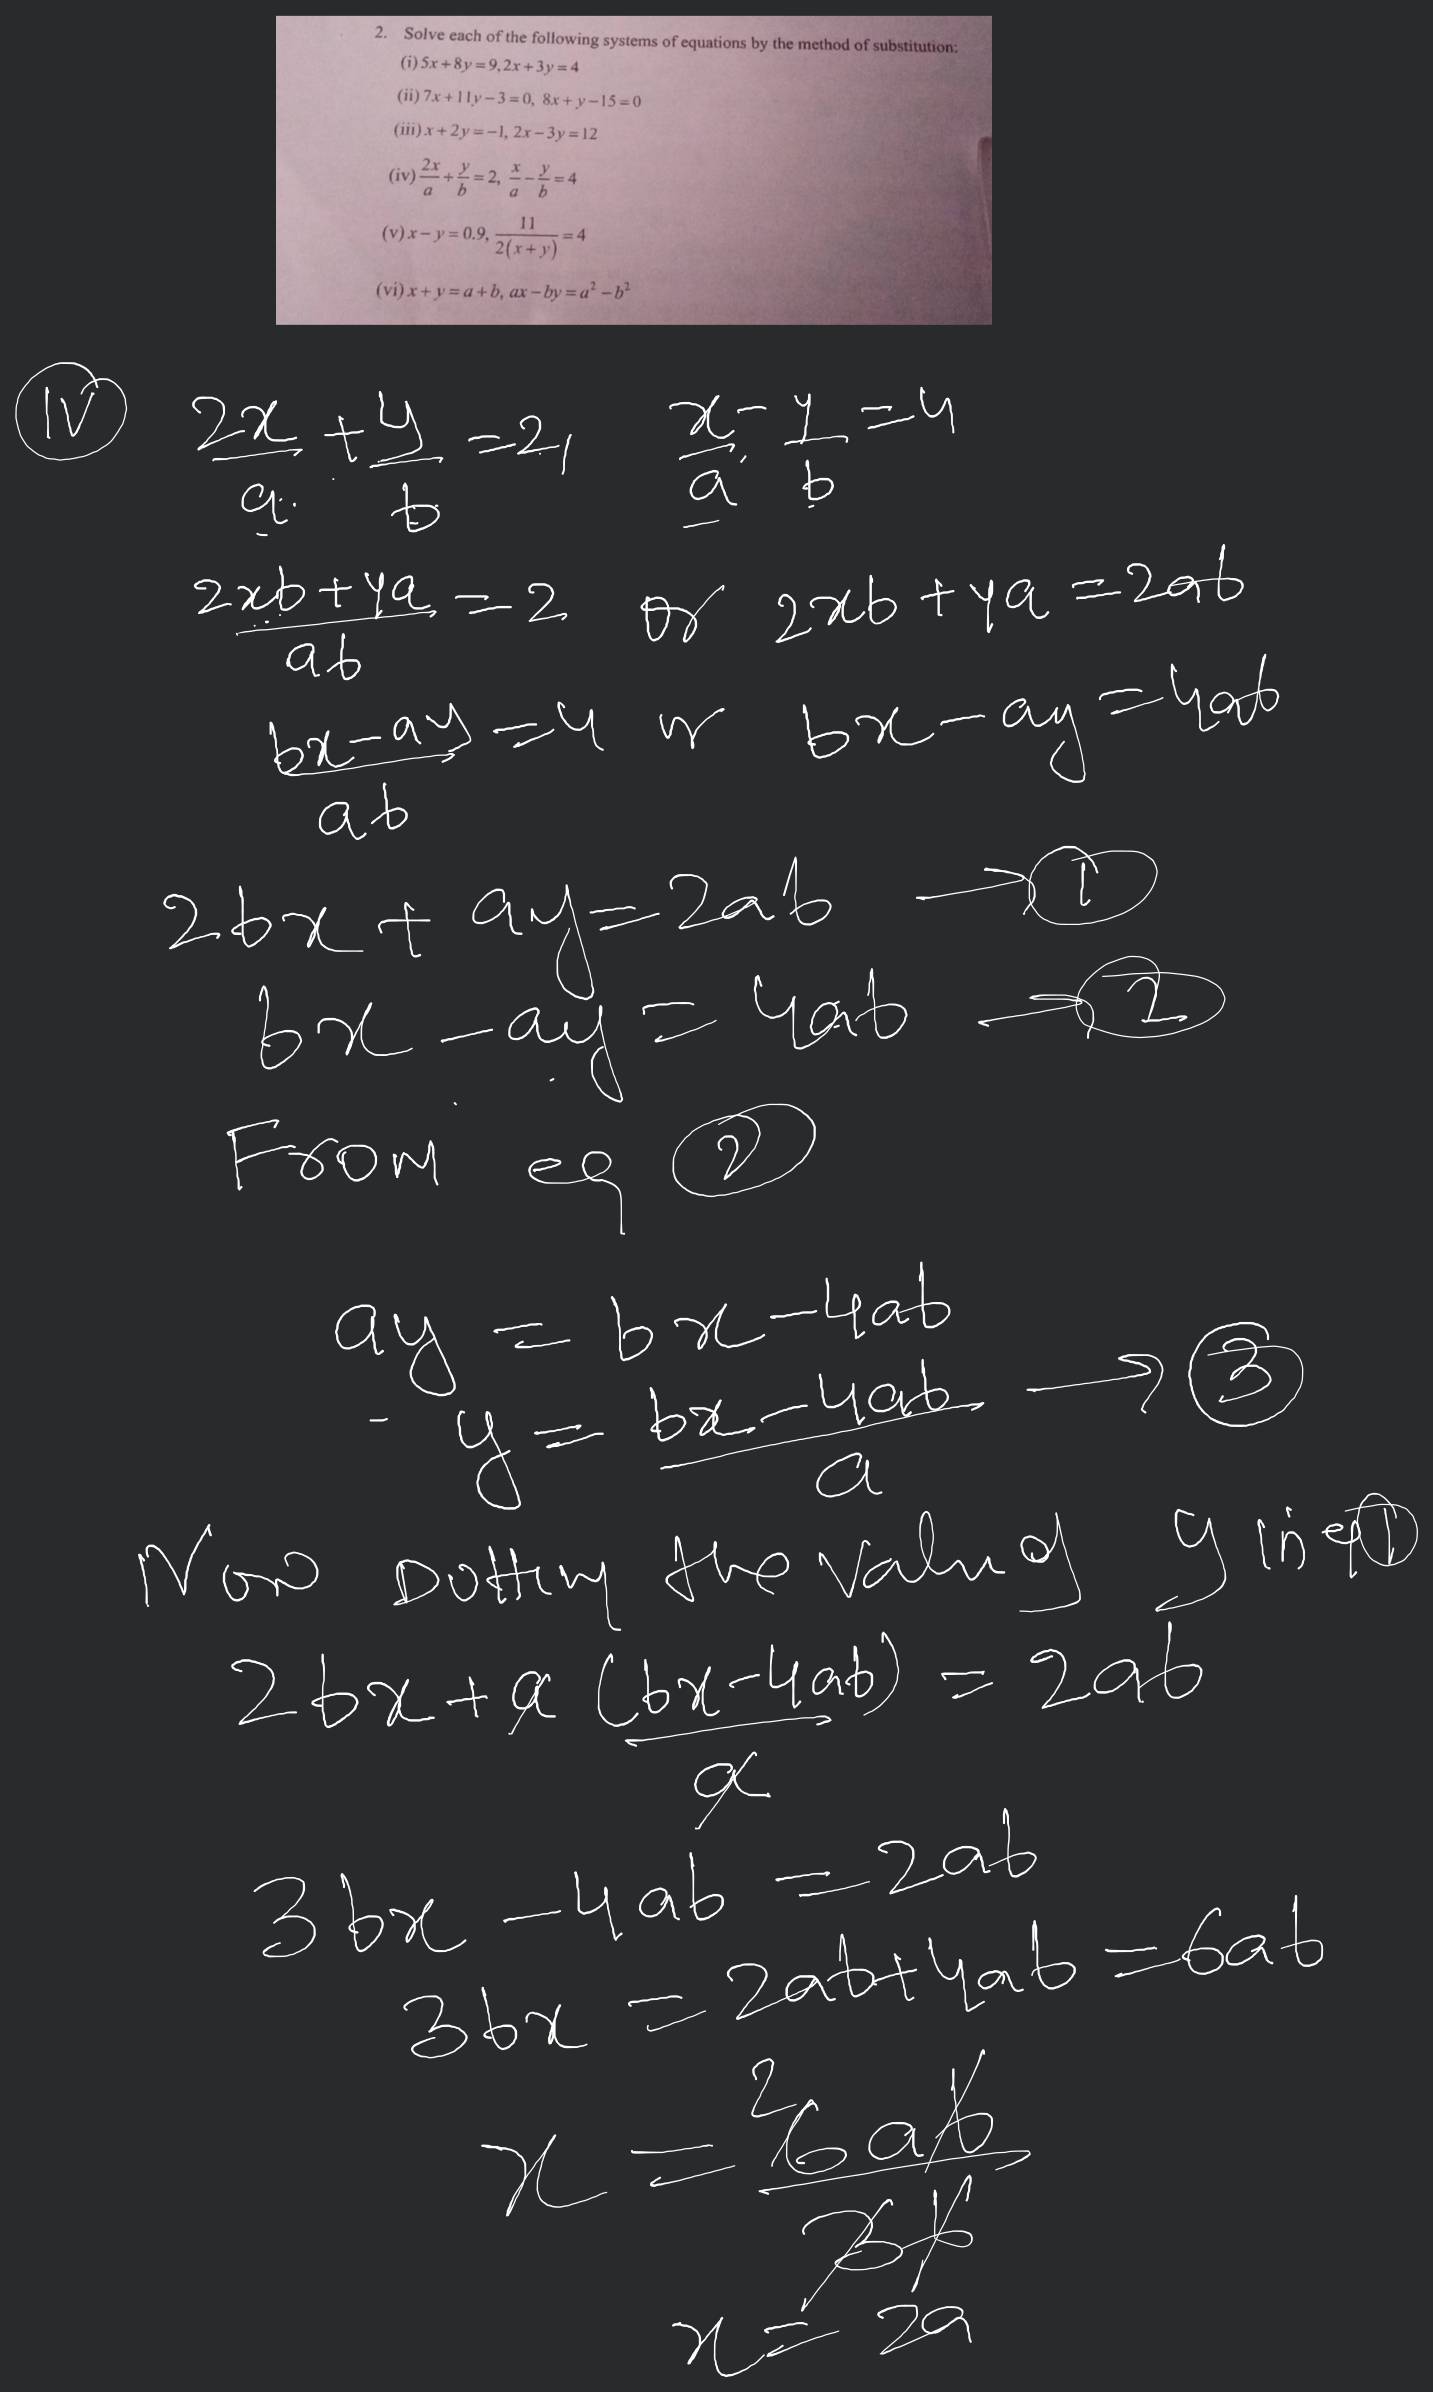 2. Solve each of the following systems of equations by the method of substitution:
(i) 5x+8y=9, 2x+3y=4
(ii) 7x+11y-3=0, 8x+y-15=0
(iii) x+2y=-1, 2x-3y=12
(iv) 2x/a + y/b = 2, x/a - y/b = 4
(v) x-y=0.9, 11/2(x+y) = 4
(vi) x+y=a+b, ax-by=a²-b²
IV 2x/a + y/b = 2, x/a - y/b = 4
2xb+ya/ab = 2 or 2xb+ya=2ab
bx-ay/ab = 4 or bx-ay=4ab
2bx+ay=2ab → 1
bx-ay=4ab → 2
From eq 2
ay = bx-4ab
y = bx-4ab/a → 3
Now the value of y in eq 1
2bx+a(bx-4ab)/a = 2ab
3bx-4ab=2ab
3bx=2ab+4ab=6ab
x = 2 6ab/3b
x = 2a